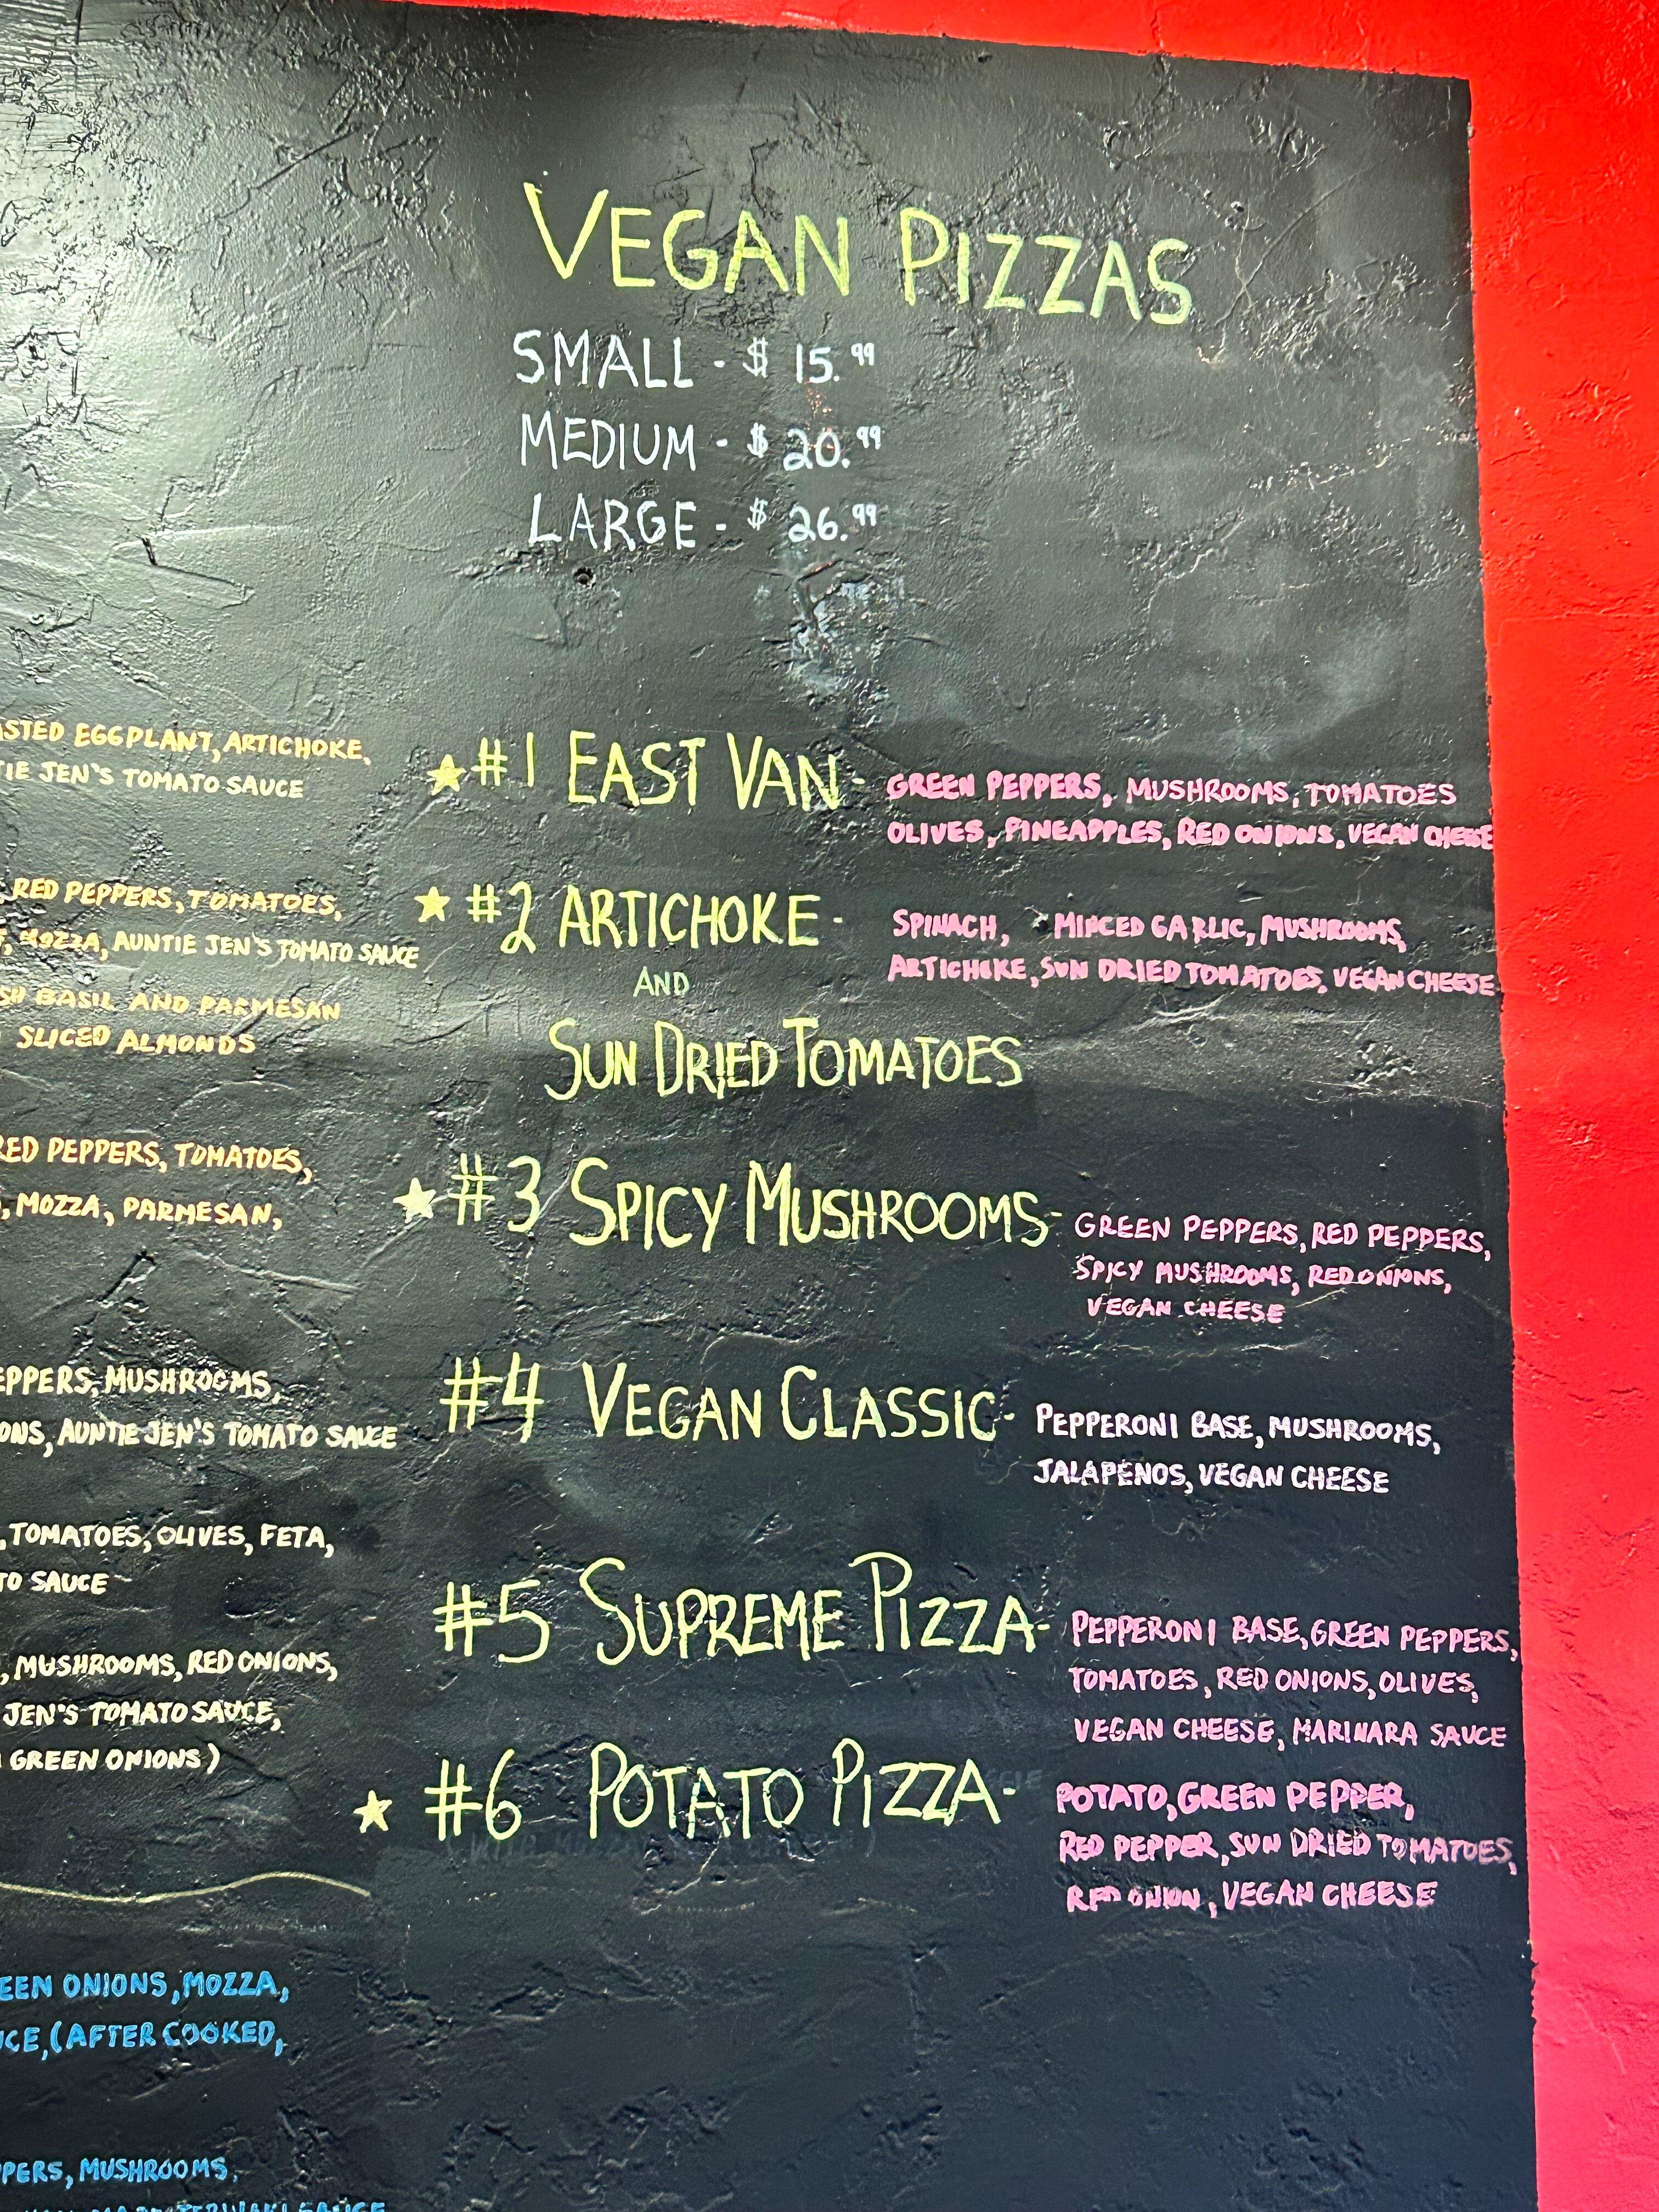 VEGAN PIZZAS
SMALL - $ 15.99
MEDIUM - $ 20.99
LARGE - $ 26.99
EGGPLANT, ARTICHOKE,
JEN'S TOMATO SAUCE
RED PEPPERS, TOMATOES,
MOZZA, AUNTIE JEN'S TOMATO SAUCE
BASIL AND PARMESAN
SLICED ALMONDS
RED PEPPERS, TOMATOES,
MOZZA, PARMESAN,
MUSHROOMS,
AUNTIE JEN'S TOMATO SAUCE
, TOMATOES, OLIVES, FETA,
SAUCE
, MUSHROOMS, RED ONIONS,
JEN'S TOMATO SAUCE,
GREEN ONIONS)
ONIONS, MOZZA,
(AFTER COOKED,
MUSHROOMS,
#1 EAST VAN - GREEN PEPPERS, MUSHROOMS, TOMATOES
OLIVES, PINEAPPLES, RED ONIONS, VEGAN CHEESE
#2 ARTICHOKE - SPINACH, MINCED GARLIC, MUSHROOMS,
AND ARTICHOKE, SUN DRIED TOMATOES, VEGAN CHEESE
SUN DRIED TOMATOES
#3 SPICY MUSHROOMS - GREEN PEPPERS, RED PEPPERS,
SPICY MUSHROOMS, RED ONIONS,
VEGAN CHEESE
#4 VEGAN CLASSIC - PEPPERONI BASE, MUSHROOMS,
JALAPENOS, VEGAN CHEESE
#5 SUPREME PIZZA - PEPPERONI BASE, GREEN PEPPERS,
TOMATOES, RED ONIONS, OLIVES,
VEGAN CHEESE, MARINARA SAUCE
#6 POTATO PIZZA - POTATO, GREEN PEPPER,
RED PEPPER, SUN DRIED TOMATOES,
RED ONION, VEGAN CHEESE